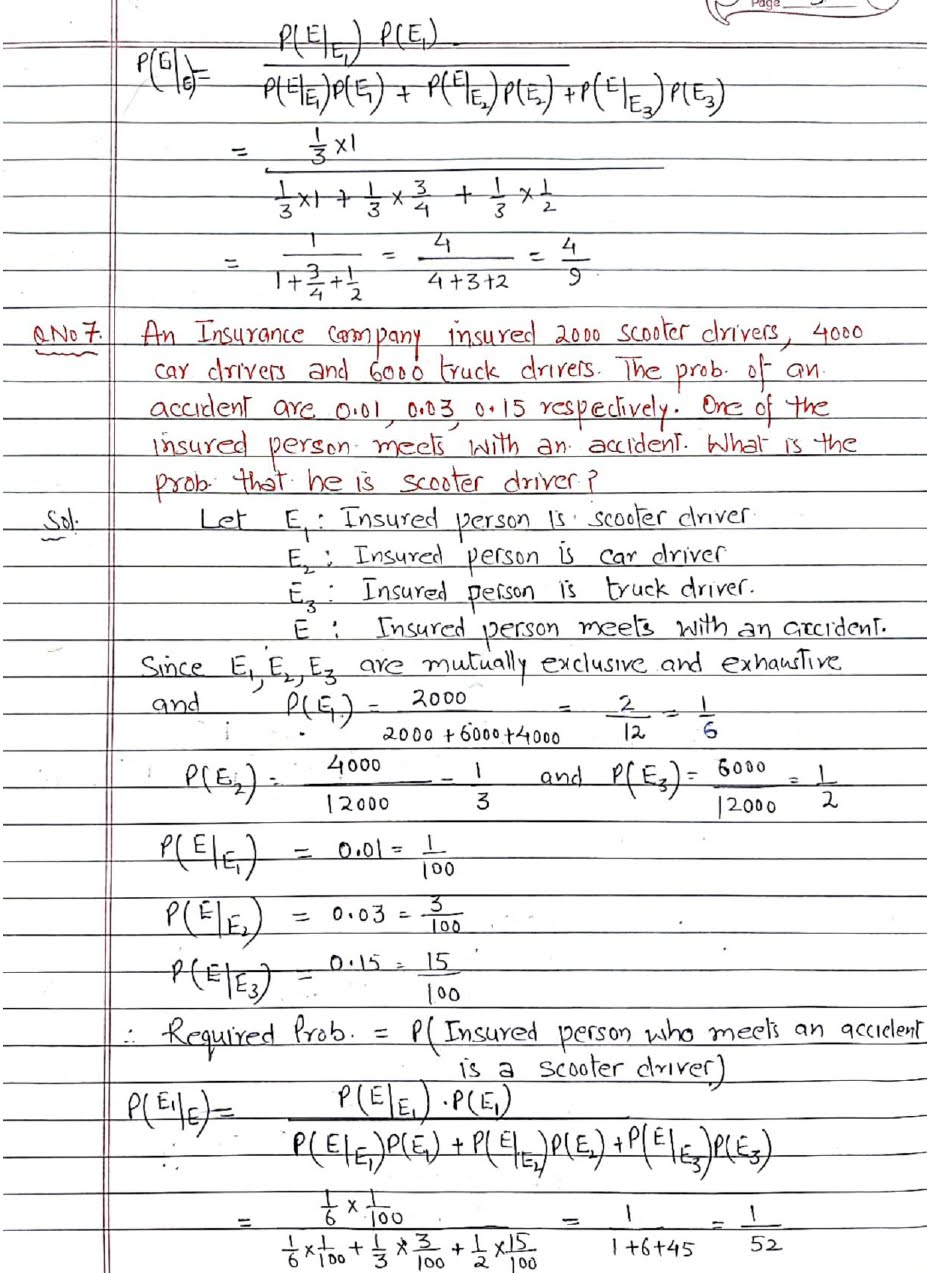 Page
P(E1/E) = P(E/E1) P(E1) / P(E/E1)P(E1) + P(E/E2)P(E2) + P(E/E3)P(E3)
= 1/3 ×1 / 1/3 ×1 + 1/3 × 3/4 + 1/3 × 1/2
= 1 / 1+3/4+1/2 = 4 / 4+3+2 = 4/9
Q No 7. An Insurance Company insured 2000 scooter drivers, 4000
car drivers and 6000 truck drivers. The prob. of an
accident are 0.01, 0.03, 0.15 respectively. One of the
insured person meets with an accident. What is the
prob. that he is scooter driver?
Sol. Let E1 : Insured person is scooter driver
E2 : Insured person is car driver
E3 : Insured person is truck driver.
E : Insured person meets with an accident.
Since E1, E2, E3 are mutually exclusive and exhaustive
and P(E1) = 2000 / 2000 + 6000 + 4000 = 2/12 = 1/6
P(E2) = 4000 / 12000 = 1/3 and P(E3) = 6000 / 12000 = 1/2
P(E/E1) = 0.01 = 1/100
P(E/E2) = 0.03 = 3/100
P(E/E3) = 0.15 = 15/100
∴ Required Prob. = P( Insured person who meets an accident
is a scooter driver)
P(E1/E) = P(E/E1) . P(E1) / P(E/E1)P(E1) + P(E/E2)P(E2) + P(E/E3)P(E3)
= 1/6 × 1/100 / 1/6 × 1/100 + 1/3 × 3/100 + 1/2 × 15/100 = 1 / 1+6+45 = 1/52